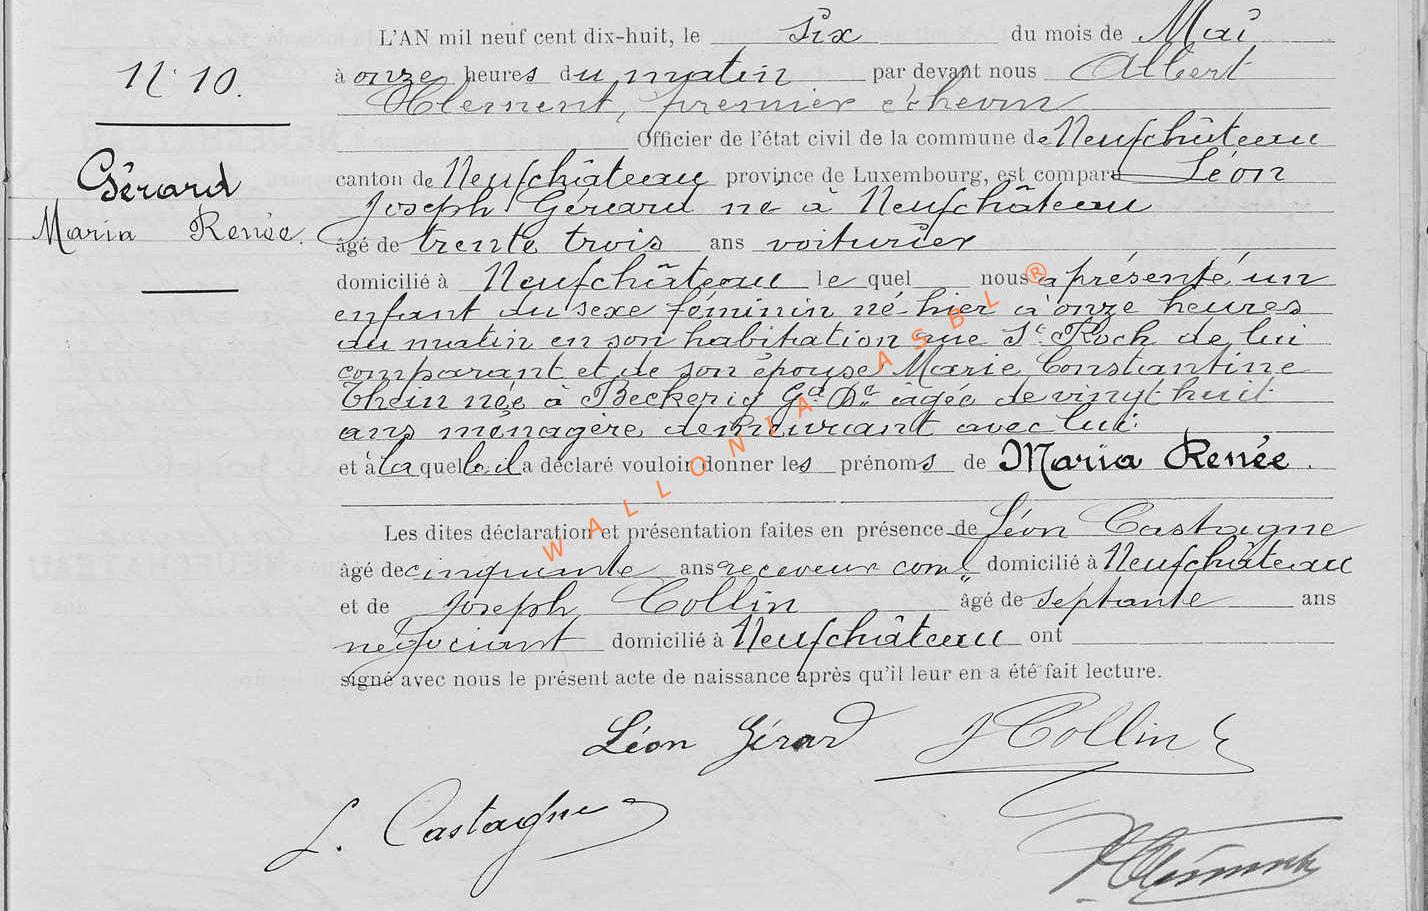 N° 10.
Gérard
Maria Renée.
L'AN mil neuf cent dix-huit, le six du mois de Mai
à onze heures du matin par devant nous Albert
Clement, premier échevin
Officier de l'état civil de la commune de Neufchâteau
canton de Neufchâteau province de Luxembourg, est comparu Léon
Joseph Gérard né à Neufchâteau
âgé de trente trois ans voiturier
domicilié à Neufchâteau le quel nous a présenté un
enfant du sexe féminin né hier à onze heures
du matin en son habitation rue St Roch de lui
comparant et de son épouse Marie Constantine
Thein née à Beckerig Gd Dé âgée de vingt huit
ans ménagère demeurant avec lui:
et à la quelle il a déclaré vouloir donner les prénoms de Maria Renée.
Les dites déclaration et présentation faites en présence de Léon Castagne
âgé de cinquante ans receveur coml domicilié à Neufchâteau
et de Joseph Collin âgé de septante ans
négociant domicilié à Neufchâteau ont
signé avec nous le présent acte de naissance après qu'il leur en a été fait lecture.
Léon Gérard J Collin
L. Castagne
AClément
WALLONIA ASBL ®